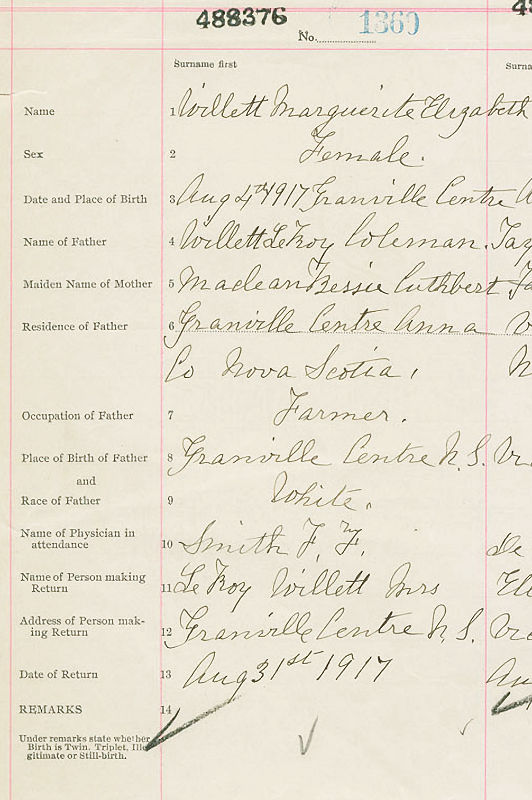 488376
No. 1360
Surname first
Name 1 Willett Marguerite Elizabeth
Sex 2 Female.
Date and Place of Birth 3 Aug 4th 1917 Granville Centre
Name of Father 4 Willett LeRoy Coleman.
Maiden Name of Mother 5 Maclean Bessie Cuthbert
Residence of Father 6 Granville Centre Anna
Co Nova Scotia.
Occupation of Father 7 Farmer.
Place of Birth of Father 8 Granville Centre N.S.
and
Race of Father 9 White.
Name of Physician in
attendance 10 Smith F. F.
Name of Person making
Return 11 LeRoy Willett Mrs
Address of Person mak-
ing Return 12 Granville Centre N.S.
Date of Return 13 Aug 31st 1917
REMARKS 14
Under remarks state whether
Birth is Twin. Triplet, Ille-
gitimate or Still-birth.